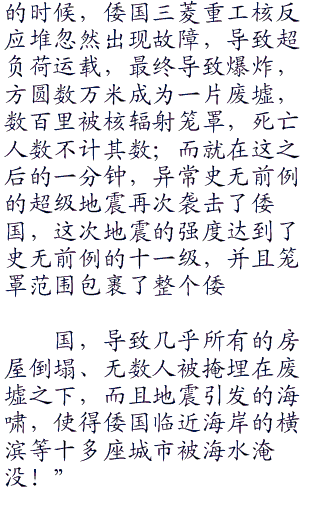 的时候，倭国三菱重工核反
应堆忽然出现故障，导致超
负荷运载，最终导致爆炸，
方圆数万米成为一片废墟，
数百里被核辐射笼罩，死亡
人数不计其数；而就在这之
后的一分钟，异常史无前例
的超级地震再次袭击了倭
国，这次地震的强度达到了
史无前例的十一级，并且笼
罩范围包裹了整个倭
国，导致几乎所有的房
屋倒塌、无数人被掩埋在废
墟之下，而且地震引发的海
啸，使得倭国临近海岸的横
滨等十多座城市被海水淹
没！”